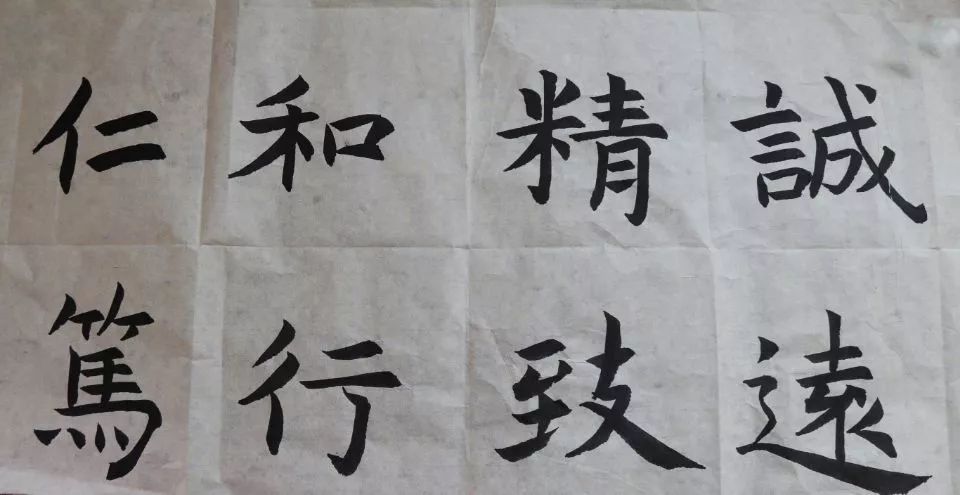 仁和精誠
篤行致遠